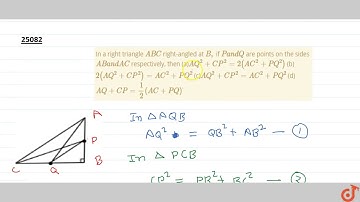 25082
In a right triangle ABC right-angled at B, if PandQ are points on the sides
ABandAC respectively, then (a)AQ² + CP² = 2(AC² + PQ²) (b)
2(AQ² + CP²) = AC² + PQ² (c)AQ² + CP² = AC² + PQ² (d)
AQ + CP = 1/2 (AC + PQ)
In △ AQB
AQ² = QB² + AB² — ①
In △ PCB
CP² = PB² + BC² — ②
A
P
B
C
Q
doubtnut